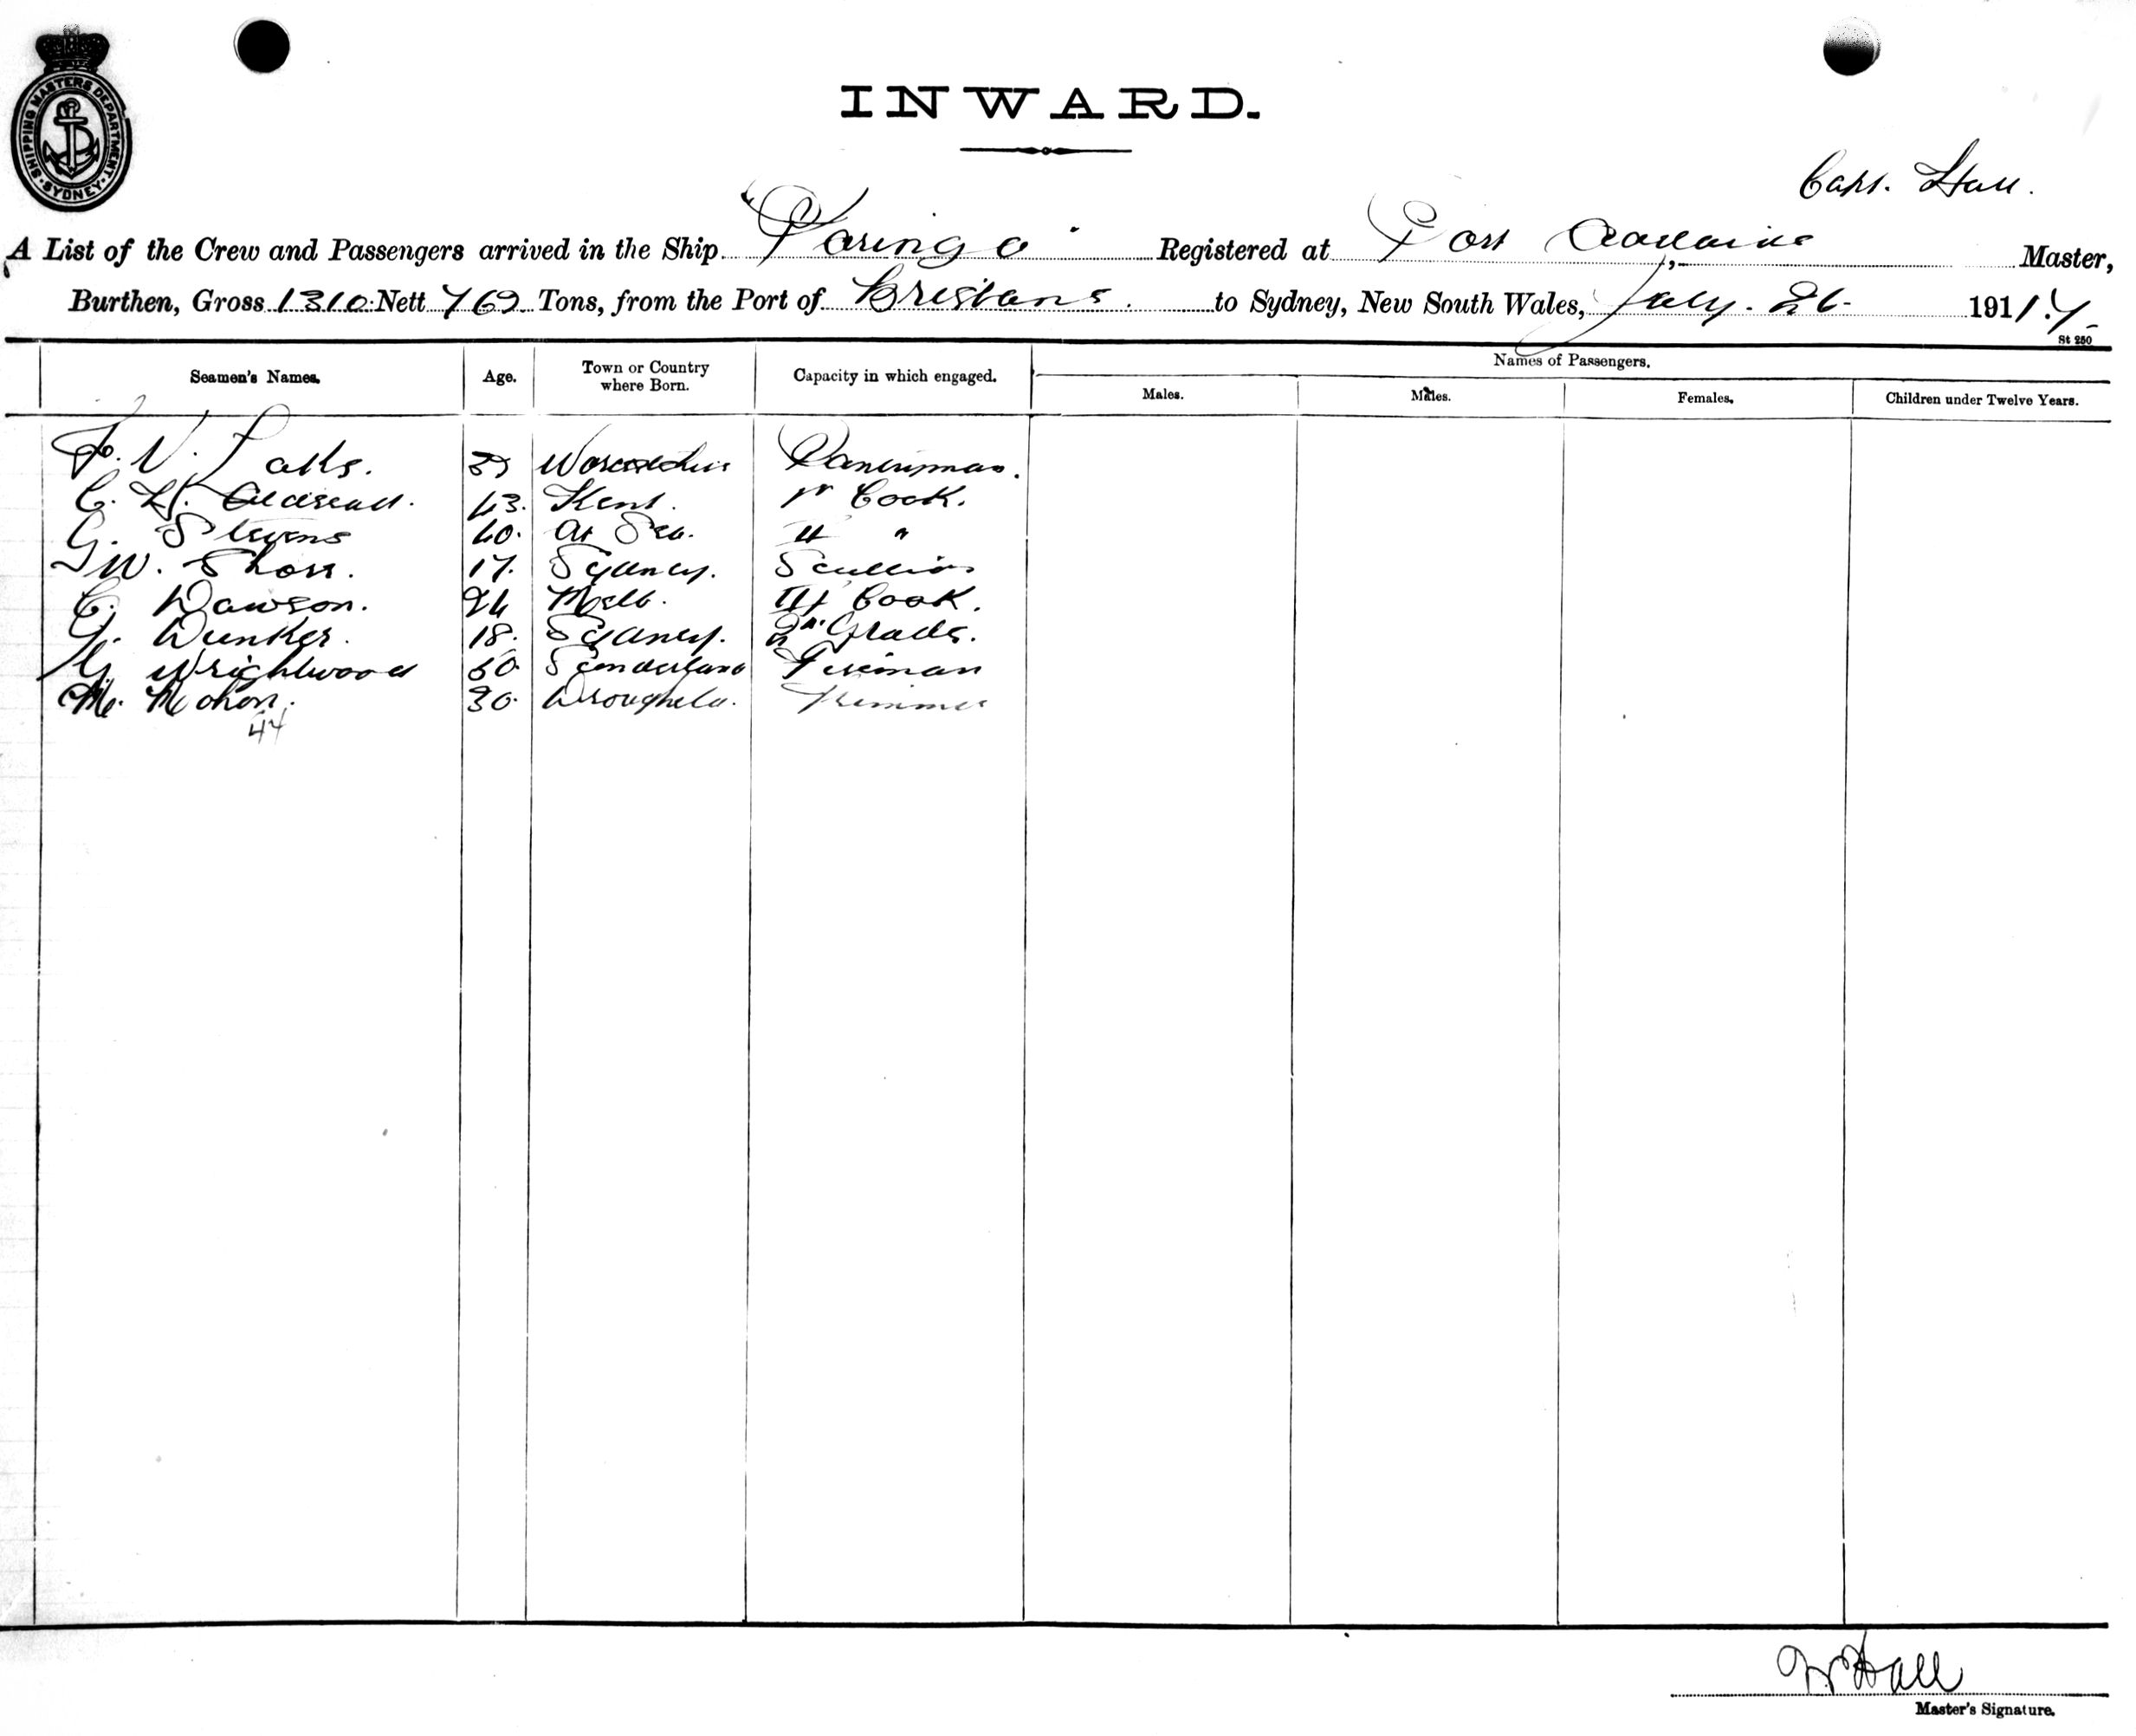 SHIPPING MASTERS DEPARTMENT · SYDNEY ·
INWARD.
Capt. Hall.
A List of the Crew and Passengers arrived in the Ship "Paringa" Registered at Port Adelaide, Master,
Burthen, Gross 1310 Nett 769 Tons, from the Port of Brisbane. to Sydney, New South Wales, July. 26 1911.
St 250
Seamen's Names. Age. Town or Country where Born. Capacity in which engaged. Names of Passengers.
Males. Males. Females. Children under Twelve Years.
Pantryman.
43. Kent. 1st Cook.
G. Stevens 40. At Sea. II "
W. Short. 17. Sydney. Scullion
C. Dawson. 24 Melb. III Cook.
G. Dunker. 18. Sydney. Grade.
G. Wrightwood Sunderland Fireman
M. Mohon. 30. Trimmer
44
W Hall
Master's Signature.